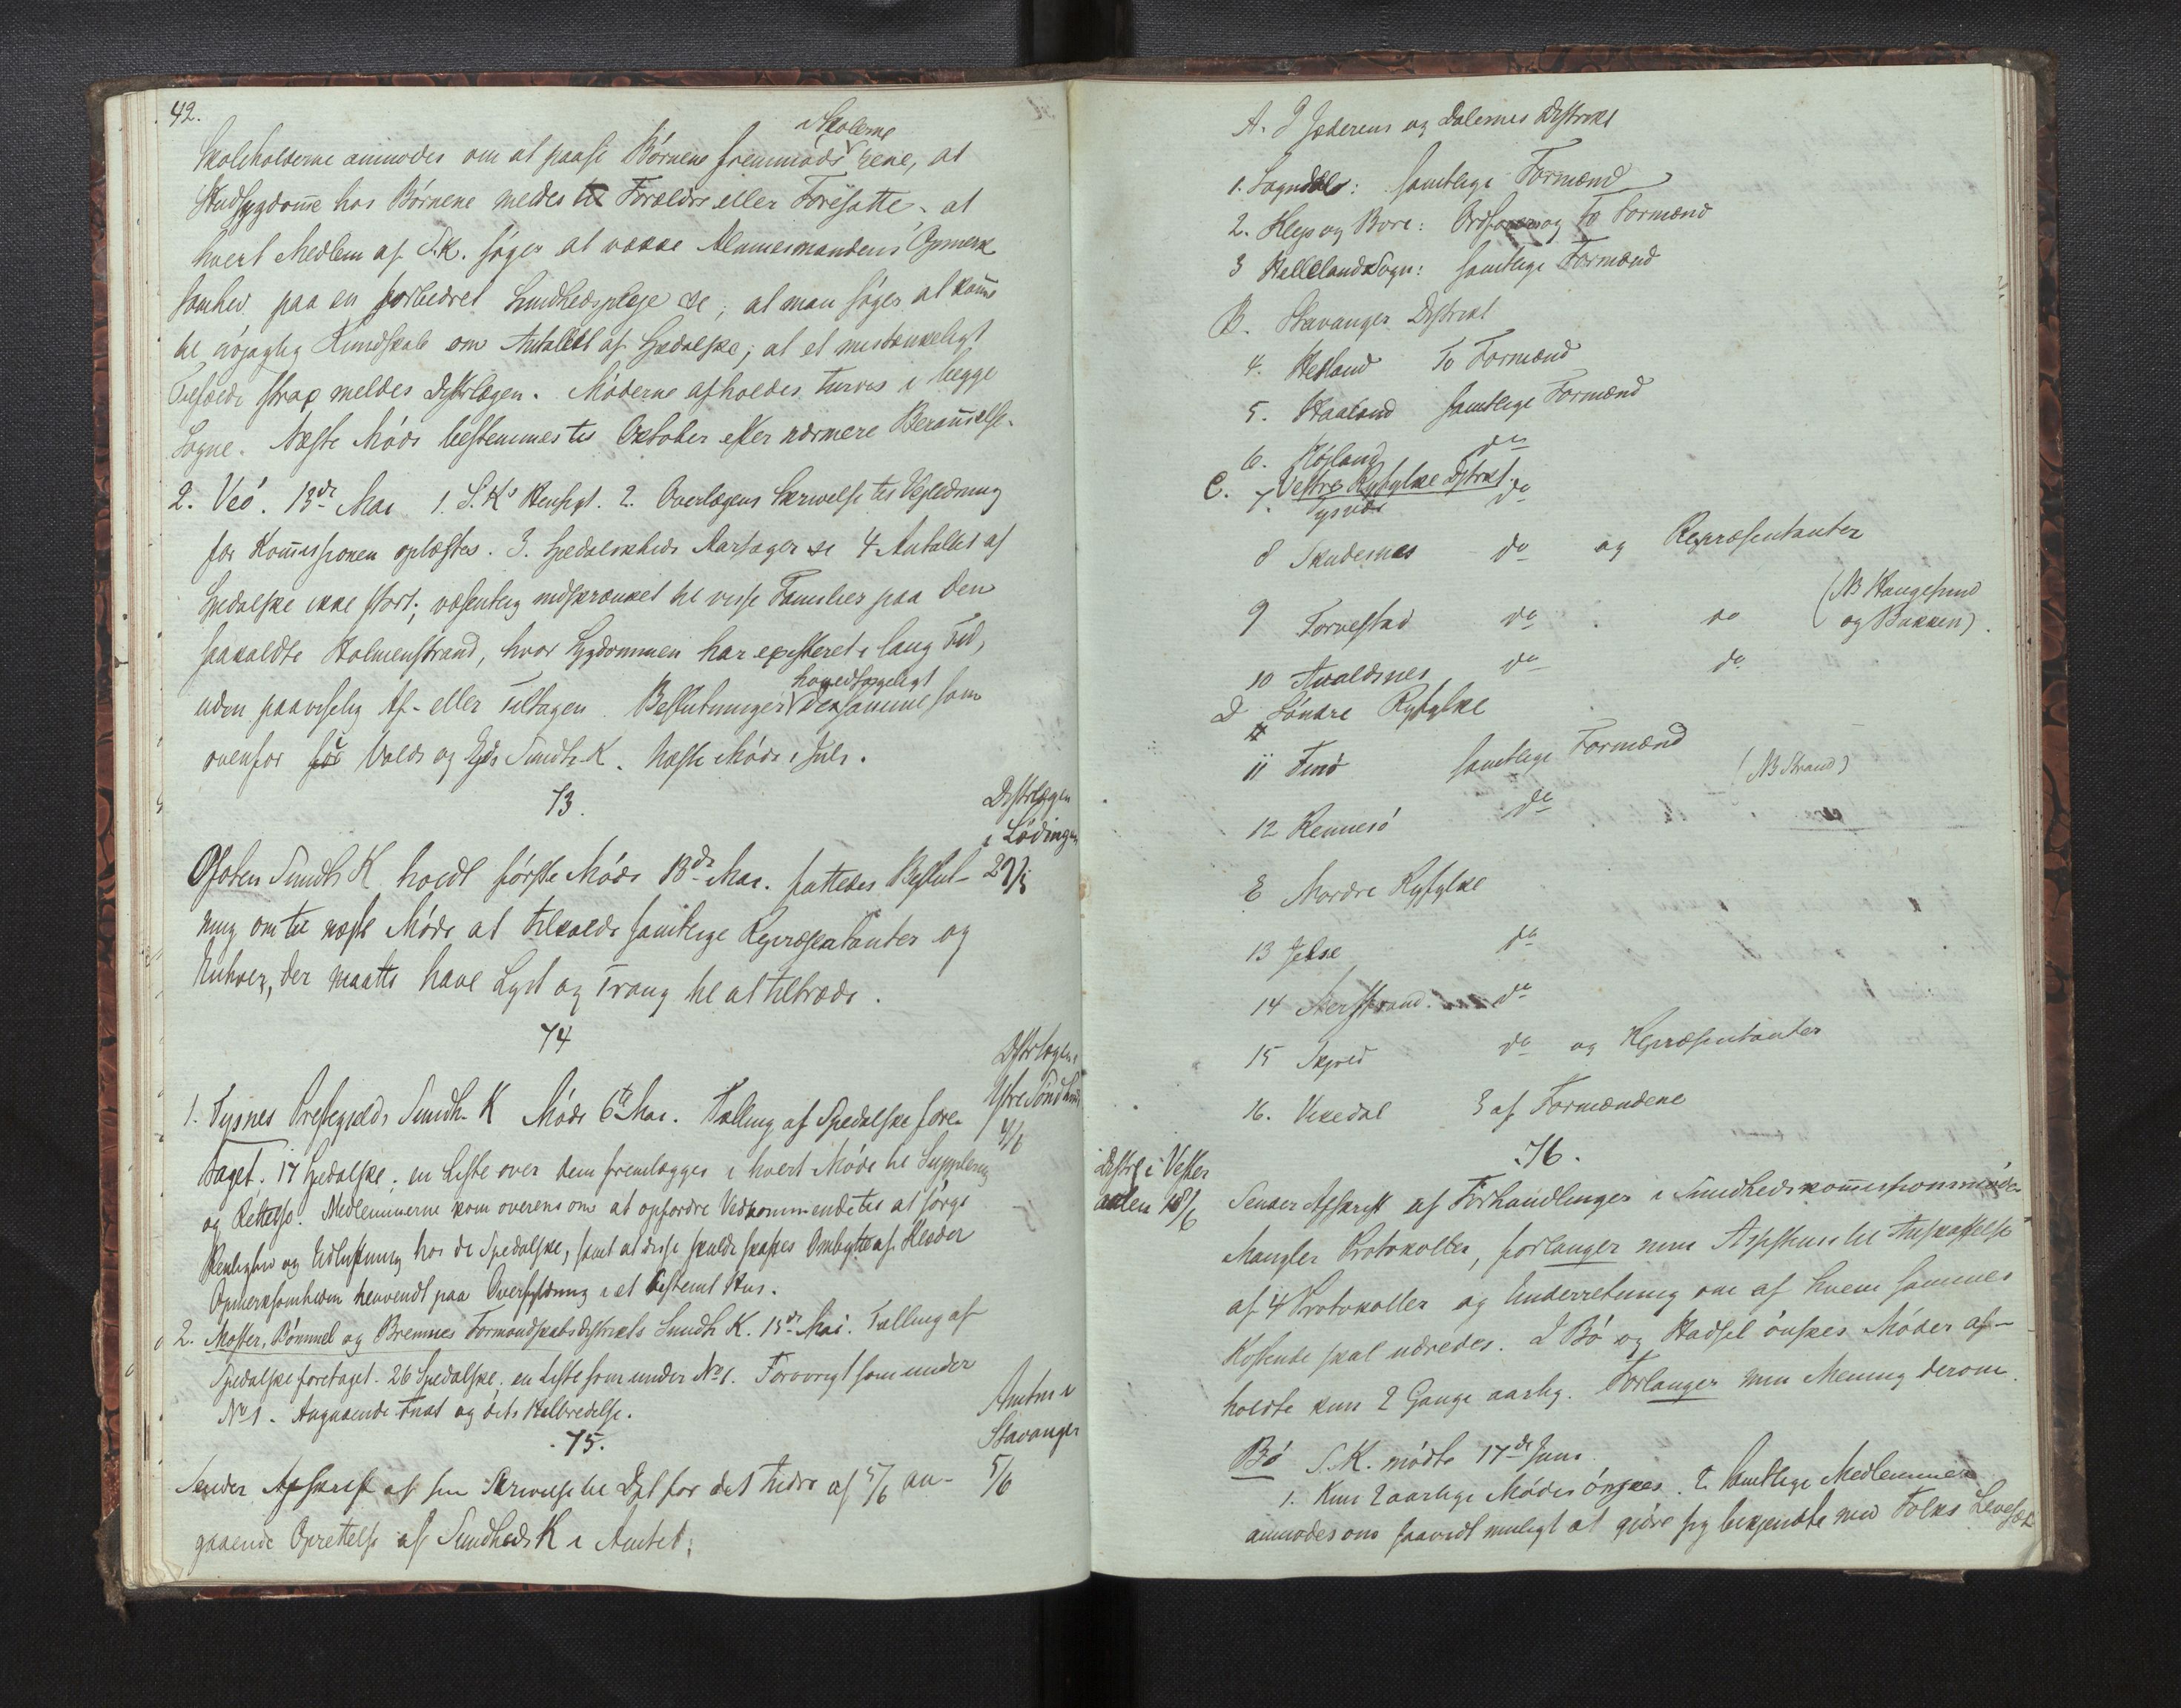 42.
i Skolerne
Skoleholderne anmodes om at paase Börnene fremmöde rene, at
Hudsygdom̄e hos Börnene meldes til Forældre eller Foresatte, at
hvert Medlem af S.K. söger at vække Almuesmandens Opmerk
somhed paa en forbedret Sundhedspleje &c; at man söger at kom̄e
til nöjagtig Kundskab om Antallet af Spedalske; at et mistænkeligt
Tilfælde strax meldes Distrlægen. Möderne afholdes turvis i begge
Sogne. Næste Möde bestemmes til Oktober efter nærmere Beram̄else.
2. Veö. 13de Mai 1. S.K's Hensigt. 2. Overlægens Skrivelse til Vejledning
for Kom̄issionen oplæstes. 3. Spedalskheds Aarsager &c 4 Antallet af
Spedalske ikke stort; væsentlig indskrænket til visse Familier paa den
saakaldte Holmenstrand, hvor Sygdommen har existeret i lang Tid,
uden paaviselig Af- eller Tiltagen. Beslutninger hovedsageligt densamme som
ovenfor for Volds og Eids Sundh. K. Næste Möde i Juli.
73.
Distrlægen
i Lødingen
29/5
Ofoten Sundh K holdt förste Möde 13de Mai. fattedes Beslut-
ning om til næste Möde at tilkalde samtlige Repræsentanter og
Enhver, der maatte have Lyst og Trang til at tiltræde.
74
Distrlægen i
Ytre Söndhordl
4/6
1. Tysnes Prestegjelds Sundh. K Möde 6te Mai. Tælling af Spedalske fore-
taget. 17 Spedalske; en Liste over dem fremlægges i hvert Möde til Supplering
og Rettelse. Medlemmerne kom overens om at opfordre Vedkommende til at sörge
Renlighed og Udluftning hos de Spedalske, samt at disse skulde skaffes Ombytte af Klæder
Opmerksomheden henvendt paa Overfyldning i et bestemt Hus.
2. Moster, Bömmel og Bremnes Formandskabsdistrikts Sundh K. 13de Mai. Tælling af
Spedalske foretaget. 26 Spedalske. en Liste som under No 1. Forövrigt som under
No 1. Angaaende Fnat og dets Helbredelse.
75.
Amtm i
Stavanger
5/6
Sender Afskrift af sin Skrivelse til Dpt for det Indre af 5/6 an-
gaaende Oprettelse af Sundheds K i Amtet:
A. I Jæderens og Dalernes Distrikt
1. Sogndal: samtlige Formænd
2. Klep og Bore: Ordförer og to Formænd
3 Helleland Sogn: samtlige Formænd
B. Stavanger Distrikt
4. Hetland To Formænd
5. Haaland samtlige Formænd
6. Höiland do
C. Vestre Ryfylke Distrikt.
7. Tysvær do
8 Skudesnes do og Repræsentanter
9 Torvestad do do (NB Haugesund
og Bukken).
10 Avaldsnes do do
D Söndre Ryfylke
11 Finö samtlige Formænd
12 Rennesö do (NB Strand)
E Nordre Ryfylke
13 Jelse do
14 Nerstrand do
15 Skjold do og Repræsentanter
16. Vikedal 3 af Formændene
76.
Distrl i Vester
aalen 18/6
Sender Afskrift af Forhandlinger i Sundhedskom̄issionsmöder
Mangler Protokoller, forlanger min Assistense til Anskaffelse
af 4 Protokoller og Underretning om af hvem sammes
Kostende skal udredes. I Bö og Hadsel önskes Möder af-
holdte kun 2 Gange aarlig. Forlanger min Mening derom.
Bö S.K. mödte 17de Juni
1. Kun 2 aarlige Möder önskes. 2. Samtlige Medlemmer
anmodes om saavidt muligt at gjöre sig bekjendte med Folks Levesæt